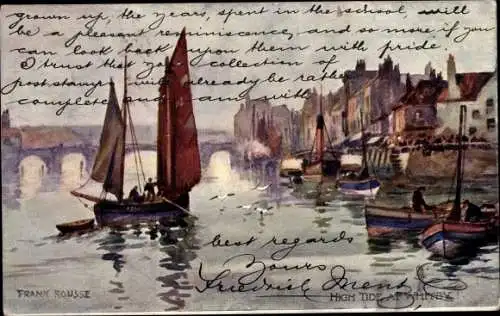 grown up, the years, spent in the school, will
be a pleasant reminiscence, and so more, if you
can look back upon them with pride.
I trust that your collection of
post stamps will already be rather
complete and am with
best regards
Yours
Friedrich
FRANK ROUSSE
HIGH TIDE AT WHITBY